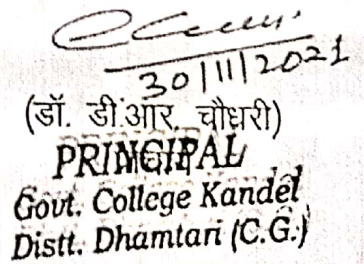 30/11/2021
(डॉ. डी.आर. चौधरी)
PRINCIPAL
Govt. College Kandel
Distt. Dhamtari (C.G.)